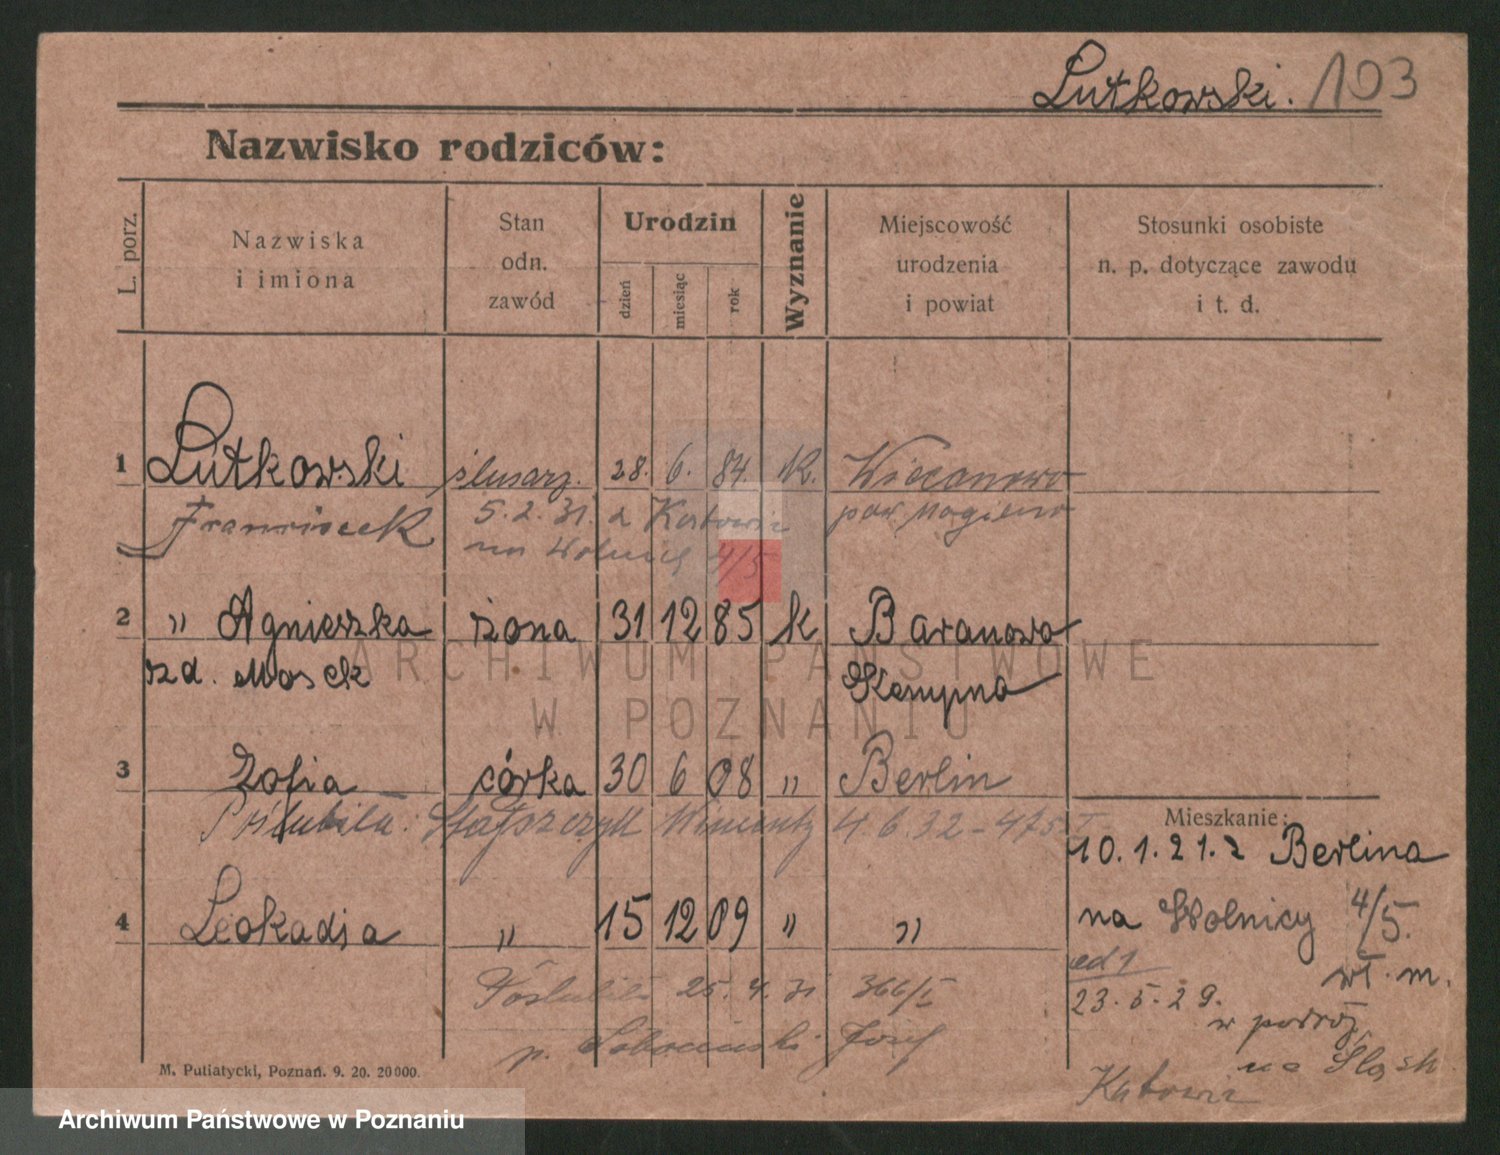 Lutkowski. 103
Nazwisko rodziców:
L. porz.
Nazwiska
i imiona
Stan
odn.
zawód
Urodzin
dzień
miesiąc
rok
Wyznanie
Miejscowość
urodzenia
i powiat
Stosunki osobiste
n. p. dotyczące zawodu
i t. d.
1 Lutkowski ślusarz. 28. 6. 84. K. Wieczanowo
Franciszek 5.2.31. z Katowic pow Mogilno
na Wolnicę 4/5
2 " Agnieszka żona 31 12 85 k Baranowo
zd. Mosek Kempno
ARCHIWUM PAŃSTWOWE
W POZNANIU
3 Zofia córka 30 6 08 " Berlin
Poślubiła: 4.6.32 - 475/I
Mieszkanie:
10.1.21. z Berlina
4 Leokadja " 15 12 09 " "
na Wolnicy 4/5.
wł. m.
Poślubiła 25.4.31 366/I
p. Józef
od 1
23.5.29.
w podróż
na Śląsk
Katowic
M. Putiatycki, Poznań. 9. 20. 20000.
Archiwum Państwowe w Poznaniu